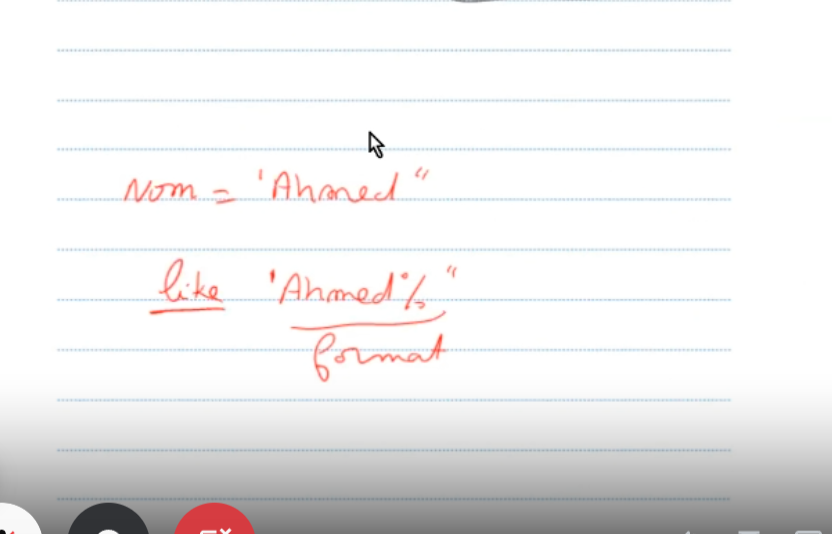 Nom = 'Ahmed"
like 'Ahmed%"
format